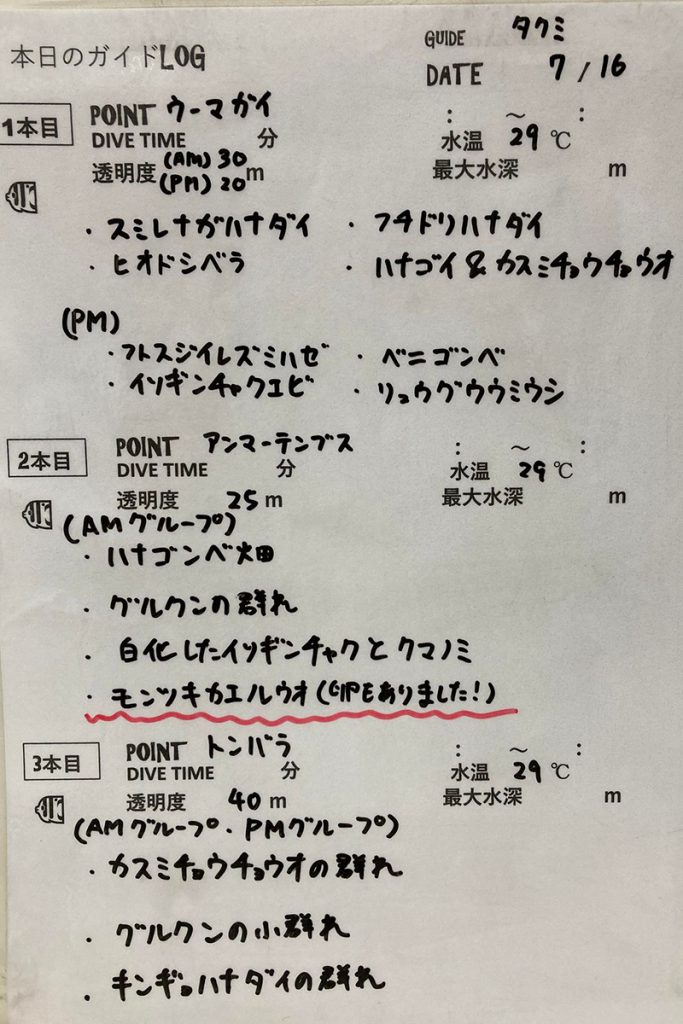 本日のガイドLOG
GUIDE タクミ
DATE 7 / 16
1本目 POINT ウーマガイ : ~ :
DIVE TIME 分 水温 29 ℃
透明度 (AM) 30 (PM) 20 m 最大水深 m
・スミレナガハナダイ ・フチドリハナダイ
・ヒオドシベラ ・ハナゴイ & カスミチョウチョウオ
(PM)
・フトスジイレズミハゼ ・ベニゴンベ
・イソギンチャクエビ ・リュウグウウミウシ
2本目 POINT アンマーテンブス : ~ :
DIVE TIME 分 水温 29 ℃
透明度 25 m 最大水深 m
(AMグループ)
・ハナゴンベ畑
・グルクンの群れ
・白化したイソギンチャクとクマノミ
・モンツキカエルウオ(ありました!)
3本目 POINT トンバラ : ~ :
DIVE TIME 分 水温 29 ℃
透明度 40 m 最大水深 m
(AMグループ・PMグループ)
・カスミチョウチョウオの群れ
・グルクンの小群れ
・キンギョハナダイの群れ